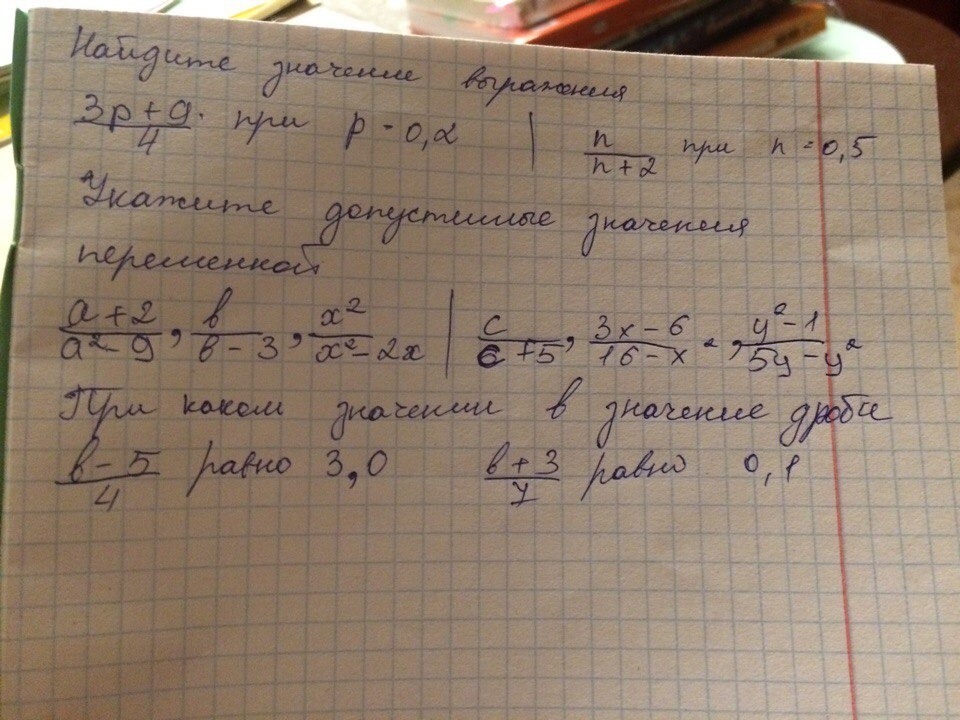 Найдите значение выражения
3p+9/4 при p-0,2 | n/n+2 при n=0,5
Укажите допустимые значения
переменной
a+2/a²-9, в/в-3, x²/x²-2x | c/c+5, 3x-6/16-x², y²-1/5y-y²
При каком значении в значение дроби
в-5/4 равно 3,0 в+3/7 равно 0,1